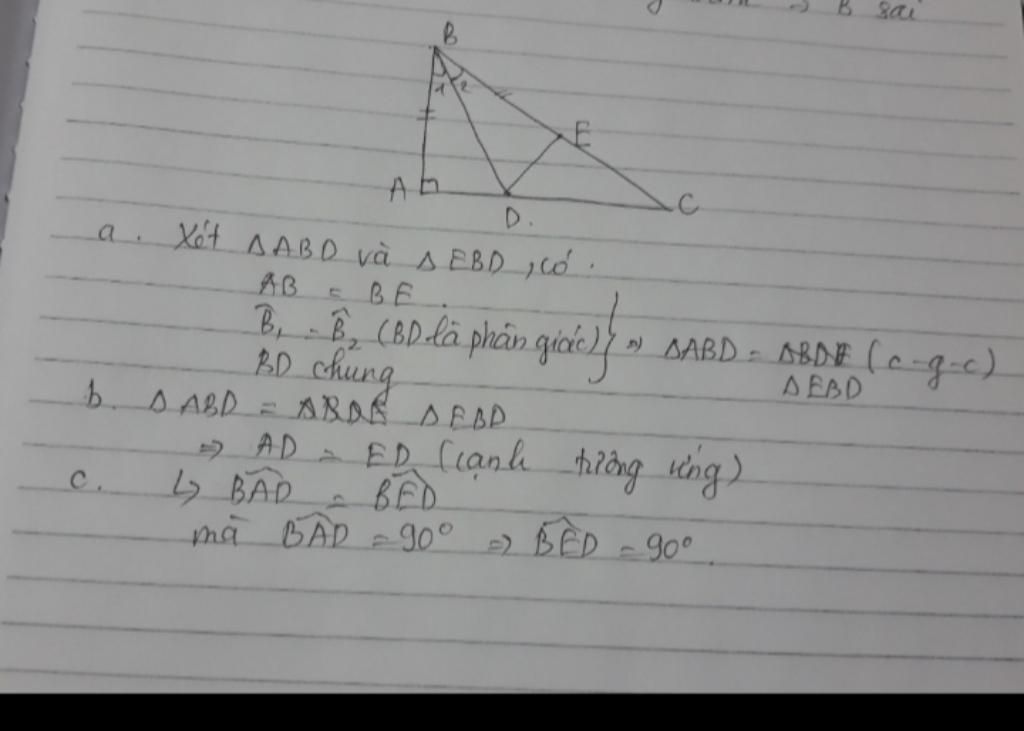 ⇒ B sai
B
1 2
E
A
D.
C
a. Xét ΔABD và ΔEBD, có.
AB = BE.
B̂₁ = B̂₂ (BD là phân giác) } ⇒ ΔABD = ΔBDE (c-g-c)
BD chung ΔEBD
b. ΔABD = ΔBDE ΔEBD
⇒ AD = ED (cạnh tương ứng)
c. ↳ B̂AD = B̂ED
mà B̂AD = 90° ⇒ B̂ED = 90°.